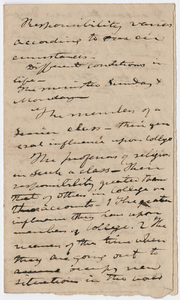 Responsibility varies
according to our cir
cumstances.
Different conditions in
life—
The minister Sunday &
Monday—
The members of a
Senior class — their gen
eral influence upon college
The professors of religion
in such a class — their
responsibility greater than
that of others in college on
this account. 1 The greater
influence they have upon
members of college. 2 The
nearness of the time when
they are going out to
occupy new
situations in the world